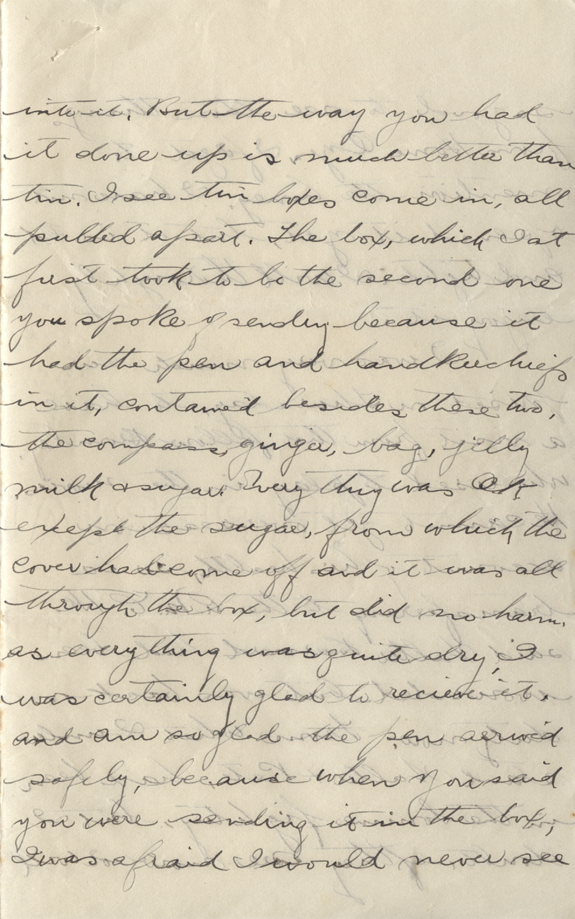 into it. But the way you had
it done up is much better than
tin. I see tin boxes come in, all
pulled apart. The box, which I at
first took to be the second one
you spoke of sending because it
had the pen and handkerchiefs
in it, contained besides these two,
the compass, ginger, bag, jelly
milk & sugar. Every thing was OK
exept the sugar, from which the
cover had come off and it was all
through the box, but did no harm.
as everything was quite dry, I
was certainly glad to recieve it.
and am so glad the pen arrived
safely, because when you said
you were sending it in the box,
I was afraid I would never see